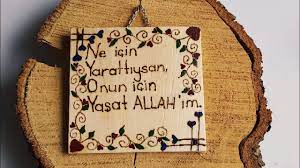 Ne için
Yarattıysan,
Onun için
Yaşat ALLAH'ım.